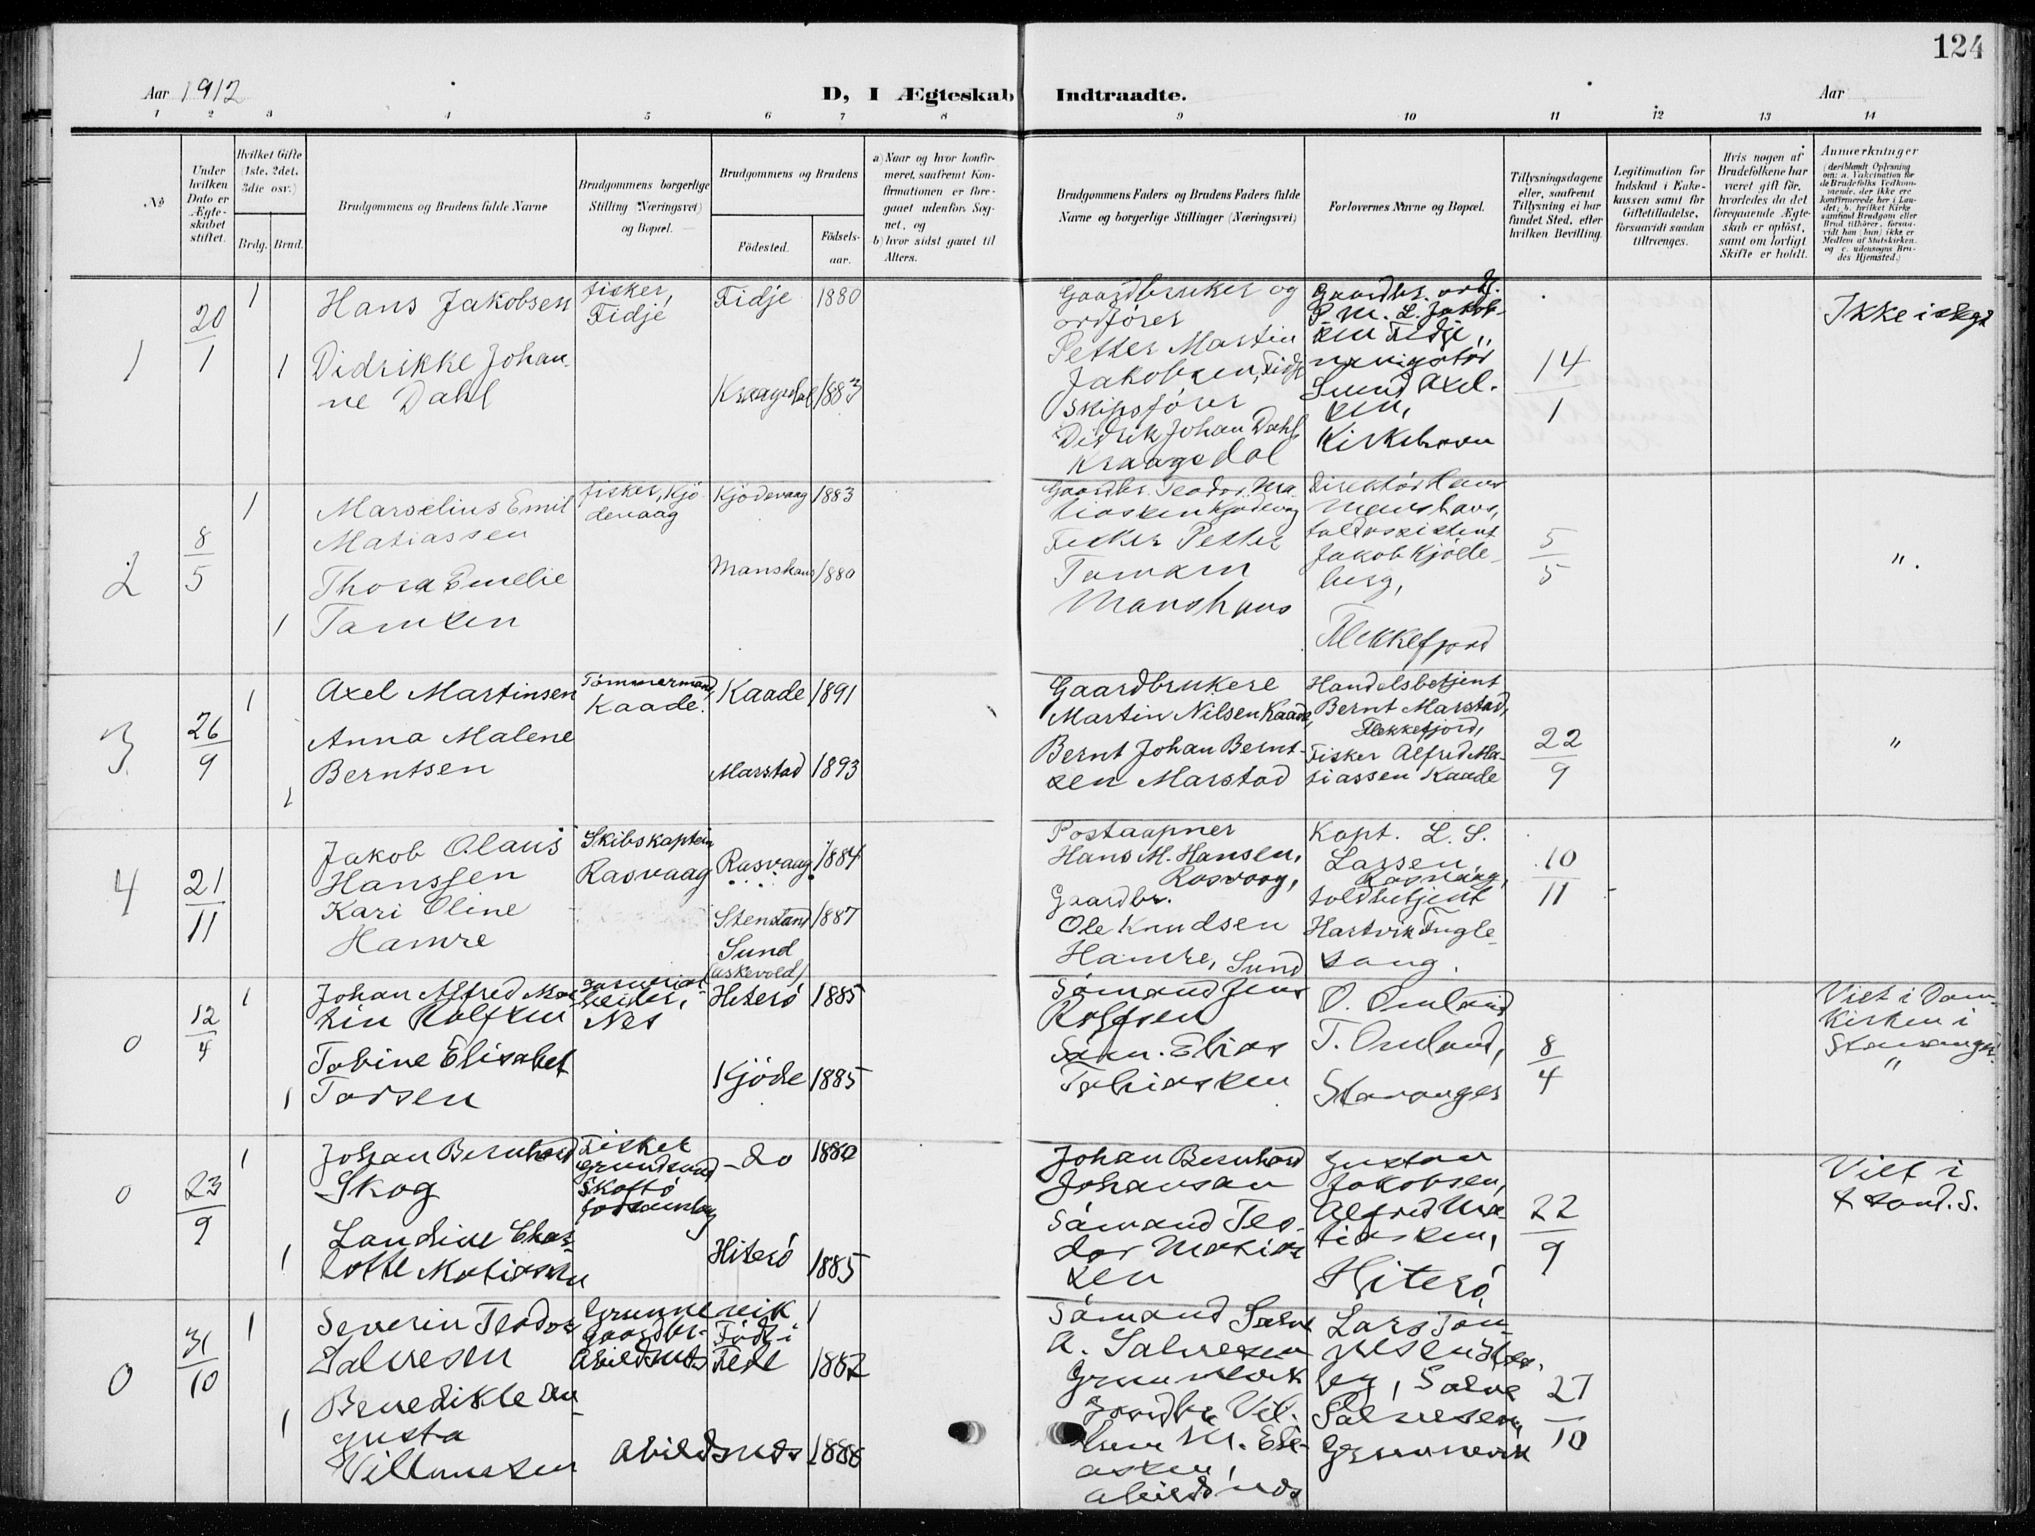 124
Aar 1912
D, I Ægteskab Indtraadte.
Aar
1 2 3 4 5 6 7 8 9 10 11 12 13 14
No
Under hvilken Dato er Ægteskabet stiftet.
Hvilket Gifte (1ste, 2det, 3die osv.)
Brdg. Brud.
Brudgommens og Brudens fulde Navne
Brudgommens borgerlige Stilling (Næringsvei) og Bopæl.
Brudgommens og Brudens
Fødested.
Fødselsaar.
a) Naar og hvor konfirmeret, saafremt Konfirmationen er foregaaet udenfor Sognet, og
b) hvor sidst gaaet til Alters.
Brudgommens Faders og Brudens Faders fulde Navne og borgerlige Stillinger (Næringsvei)
Forlovernes Navne og Bopæl.
Tillysningsdagene eller, saafremt Tillysning ei har fundet Sted, efter hvilken Bevilling.
Legitimation for Indskud i Enkekassen samt for Giftetilladelse, forsaavidt saadan tiltrænges.
Hvis nogen af Brudefolkene har været gift før, hvorledes da det foregaaende Ægteskab er opløst, samt om lovligt Skifte er holdt.
Anmærkninger
1
20/1
1
Hans Jakobsen
fisker, Fidje
Fidje 1880
1
Didrikke Johanne Dahl
Kraagedal 1883
Gaardbruker og ordfører
Petter Martin
Jakobsen, Fidje
Skipsfører
Didrik Johan Dahl
Kraagedal
Gaardbr. ordf.
P. M. L. Jakobsen Fidje,
navigatør
Sund Axelsen,
Kirkehavn
14/1
Ikke i slegt
2
8/5
1
Marselius Emil
Matiassen
fisker, Kjødevaag
Kjødevaag 1883
1
Thora Emelie
Tamsen
Manshaus 1880
Gaardbr. Teodor Matiassen Kjødevag
Fisker Petter
Tamsen
Manshaus
Direktør Hans
Manshaus,
toldassistent
Jakob Kjødeberg,
Flekkefjord
5/5
".
3
26/9
1
Axel Martinsen
Tømmermand, Kaade.
Kaade 1891
1
Anna Malene
Berntsen
Marstad 1893
Gaardbrukere
Martin Nilsen Kaade,
Bernt Johan Berntsen Marstad
Handelsbetjent
Bernt Marstad,
Flekkefjord,
Fisker Alfred Matiassen Kaade
22/9
"
4
21/11
Jakob Olaus
Hanssen
Skibskaptein
Rasvaag
Rasvaag 1884
Kari Oline
Hamre
Stensund
Sund
(Askevold) 1887
Postaapner
Hans M. Hansen,
Rasvaag,
Gaardbr.
Ole Knudsen
Hamre, Sund
Kapt. L. S.
Larsen,
Rasvaag,
toldbetjent
Hartvik Fuglesang.
10/11
0
12/4
1
Johan Alfred Martin Rolfsen
Nes
Hiterø 1885
1
Tobine Elisabet
Torsen
Kjøde 1885
Sømand Jens
Rolfsen
Søm. Elias
Tobiassen
O. Omland
T. Omland,
Stavanger
8/4
Viet i Domkirken i
Stavanger.
"
0
23/9
1
Johan Bernhard
Skog
Fisker
Grundsund
Skaftö
forsamling
- do 1880
1
Landine Charlotte Matiassen
Hiterø 1885
Johan Bernhard
Johansan
Sømand Teodor Matiassen
Gustav
Jakobsen,
Alfred Matiassen,
Hiterø
22/9
Viet i
0
31/10
1
Severin Teodor
Salvesen
Grunnevik
gaardbr.
Abildsnes
Født i
Fede 1882
1
Benedikte Augusta
Villumsen
Abildsnes 1886
Sømand Salve
A. Salvesen
Grunnevik
Gaardbr. Vilhum M. Eliassen,
Abildsnes
Lars Tønnesen
Salve
Salvesen,
Grunnevik
27/10